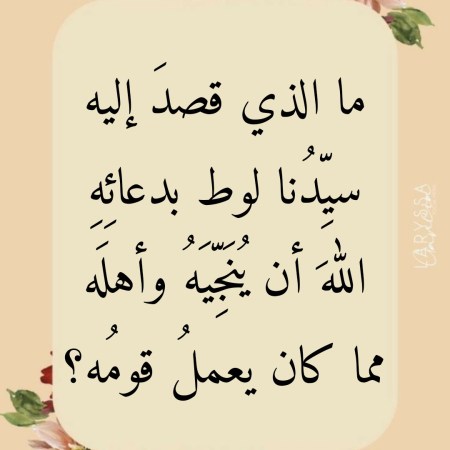 ما الذي قصدَ إليه
سيِّدُنا لوط بدعائِهِ
اللهَ أن يُنَجِّيَهُ وأهلَه
مما كان يعملُ قومُه؟